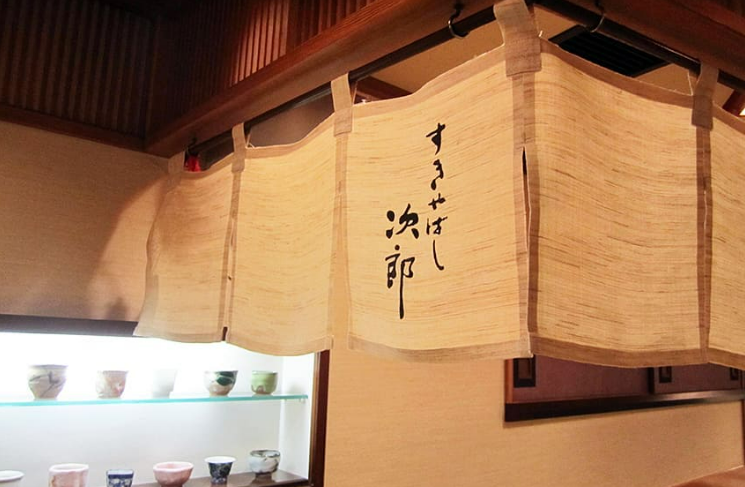 すきやばし
次郎